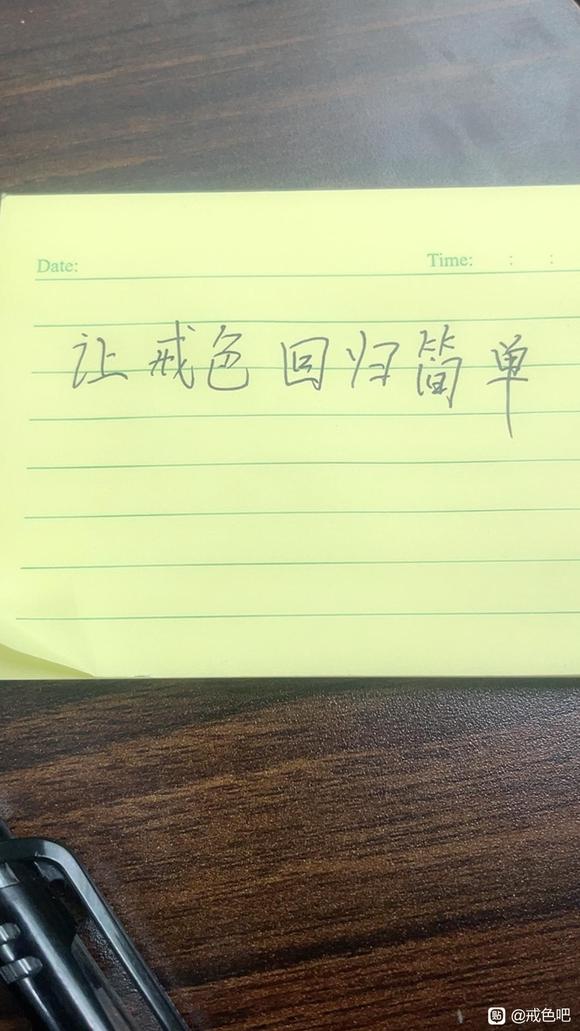 Date:
Time: : :
让戒色回归简单
贴 @戒色吧